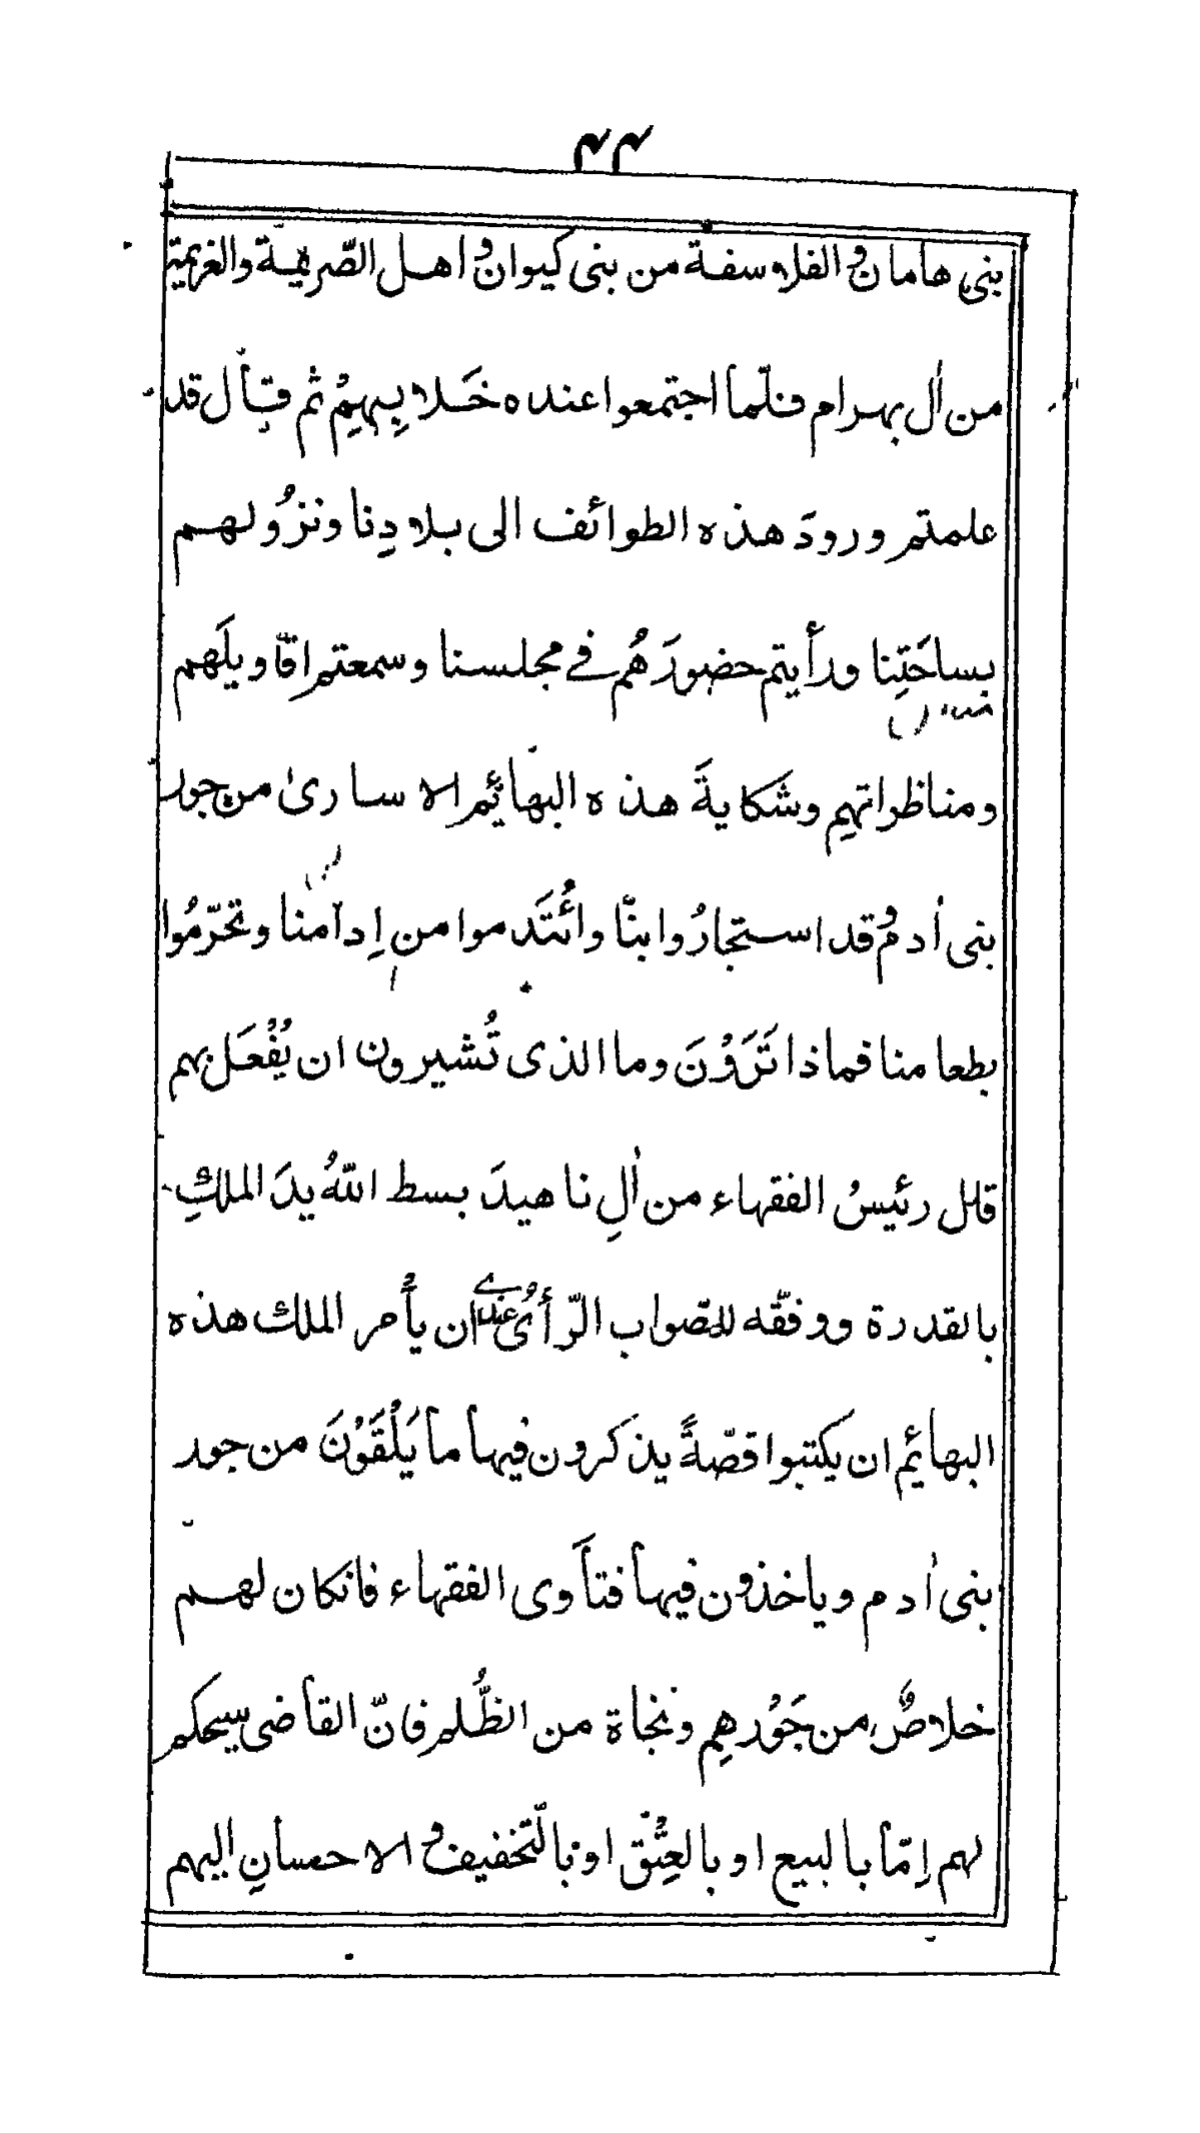 ٣٣
بنى هامان و الفلاسفة من بنى كيوان و اهل الصّريمة والغريمة
من اٰل بهرام فلمّا اجتمعوا عنده خَلا بِهِمُ ثم قال قد
علمتم ورودَ هذه الطوائف الى بلادِنا ونزُولهم
بساحَتِنا ورأيتم حضورَهُم فے مجلسنا وسمعتم اقاويلَهم
ومناظراتهِم وشَكايةَ هذه البهائِم الاسارىٰ من جور
بنى اٰدم و قد استجارُوا بنّا وائُتَدموا من اِدامنا وتحرّمُوا
بطعامنا فماذا تَرَوْنَ وما الذى تُشيرون ان يُفْعَل بهم
قال رئيسُ الفقهاء من اٰلِ ناهيدَ بسط اللّٰهُ يدَ الملكِ
بالقدرة ووفقّه للصّواب الرّأىُ عندے ان يأمر الملك هذه
البهائِم ان يكتبوا قصّةً يذكرون فيها ما يَلْقَوْنَ من جور
بنى اٰدم وياخذون فيها فتاوى الفقهاء فانكان لهم
خلاصٌ من جَوْرهِم ونجاة من الظُّلم فانّ القاضى سيحكم
لهم اِمّا بالبيع او بالعِتْق او بالتّخفيف و الاحسانِ اليهم